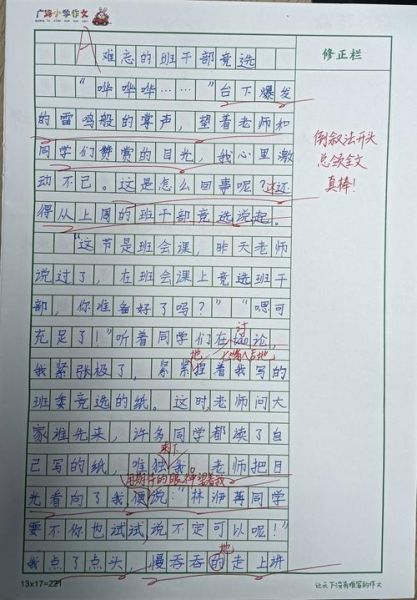 广铭小学作文
A
难忘的班干部竞选
修正栏
"哗哗哗……"台下爆发
的雷鸣般的掌声，望着老师和
同学们赞赏的目光，我心里激
动不已。这是怎么回事呢？这还
得从上周的班干部竞选说起。
倒叙法开头
总领全文
真棒！
"这节是班会课，昨天老师
说过了，在班会课上竞选班干
部，你准备好了吗？""嗯可
充足了！"听着同学们在讨论，
讨
地
我紧张极了，紧紧捏着我写的
班委竞选的纸。这时老师问大
家谁先来，许多同学都读了自
己写的纸，唯独我。老师把目
剩下
用期待的眼神望着我
光看向了我便说："林洢苒同学
要不你也试试，说不定可以呢！"
地
我点了点头，慢吞吞的走上讲
13x17=221
让天下没有难写的作文